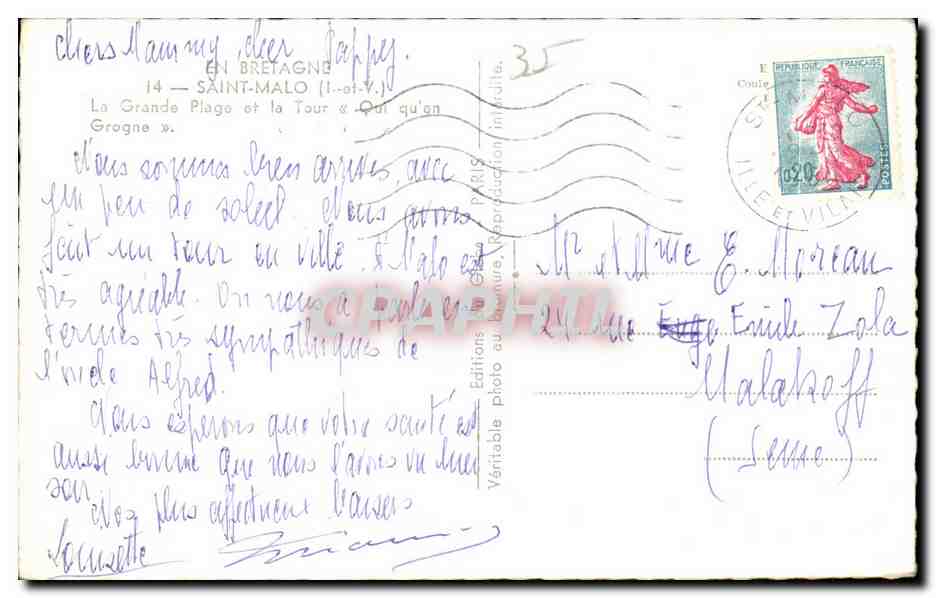 chers Mammy, cher Pappy.
35
EN BRETAGNE
14 — SAINT-MALO (I.-et-V.)
La Grande Plage et la Tour « Qui qu'en
Grogne ».
Nous sommes bien arrivés avec
un peu de soleil. Nous avons
fait un tour en ville. St Malo est
très agréable. On nous a parlé en
termes très sympathiques de
l'oncle Alfred.
Nous espérons que votre santé est
aussi bonne que nous l'avons vu hier
soir.
Nos plus affectueux baisers
Louisette
Editions du Globe, PARIS
Véritable photo au bromure, Reproduction interdite.
REPUBLIQUE FRANÇAISE
0,20
POSTES
ILLE ET VILAINE
Mr et Mme E. Moreau
24 rue Emile Zola
Malakoff
(Seine)
CPAPHIL